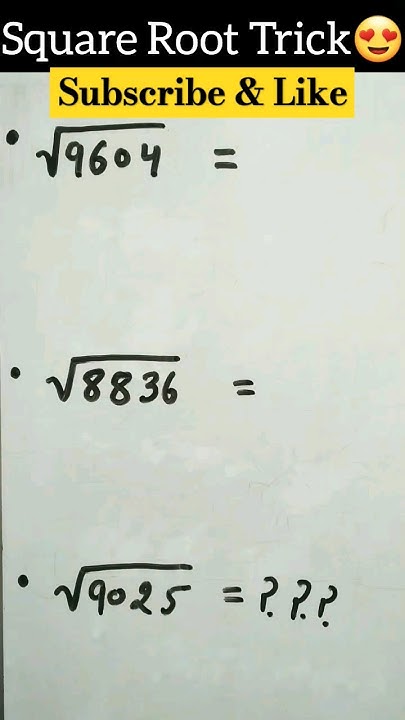 Square Root Trick😍
Subscribe & Like
• √9604 =
• √8836 =
• √9025 = ???